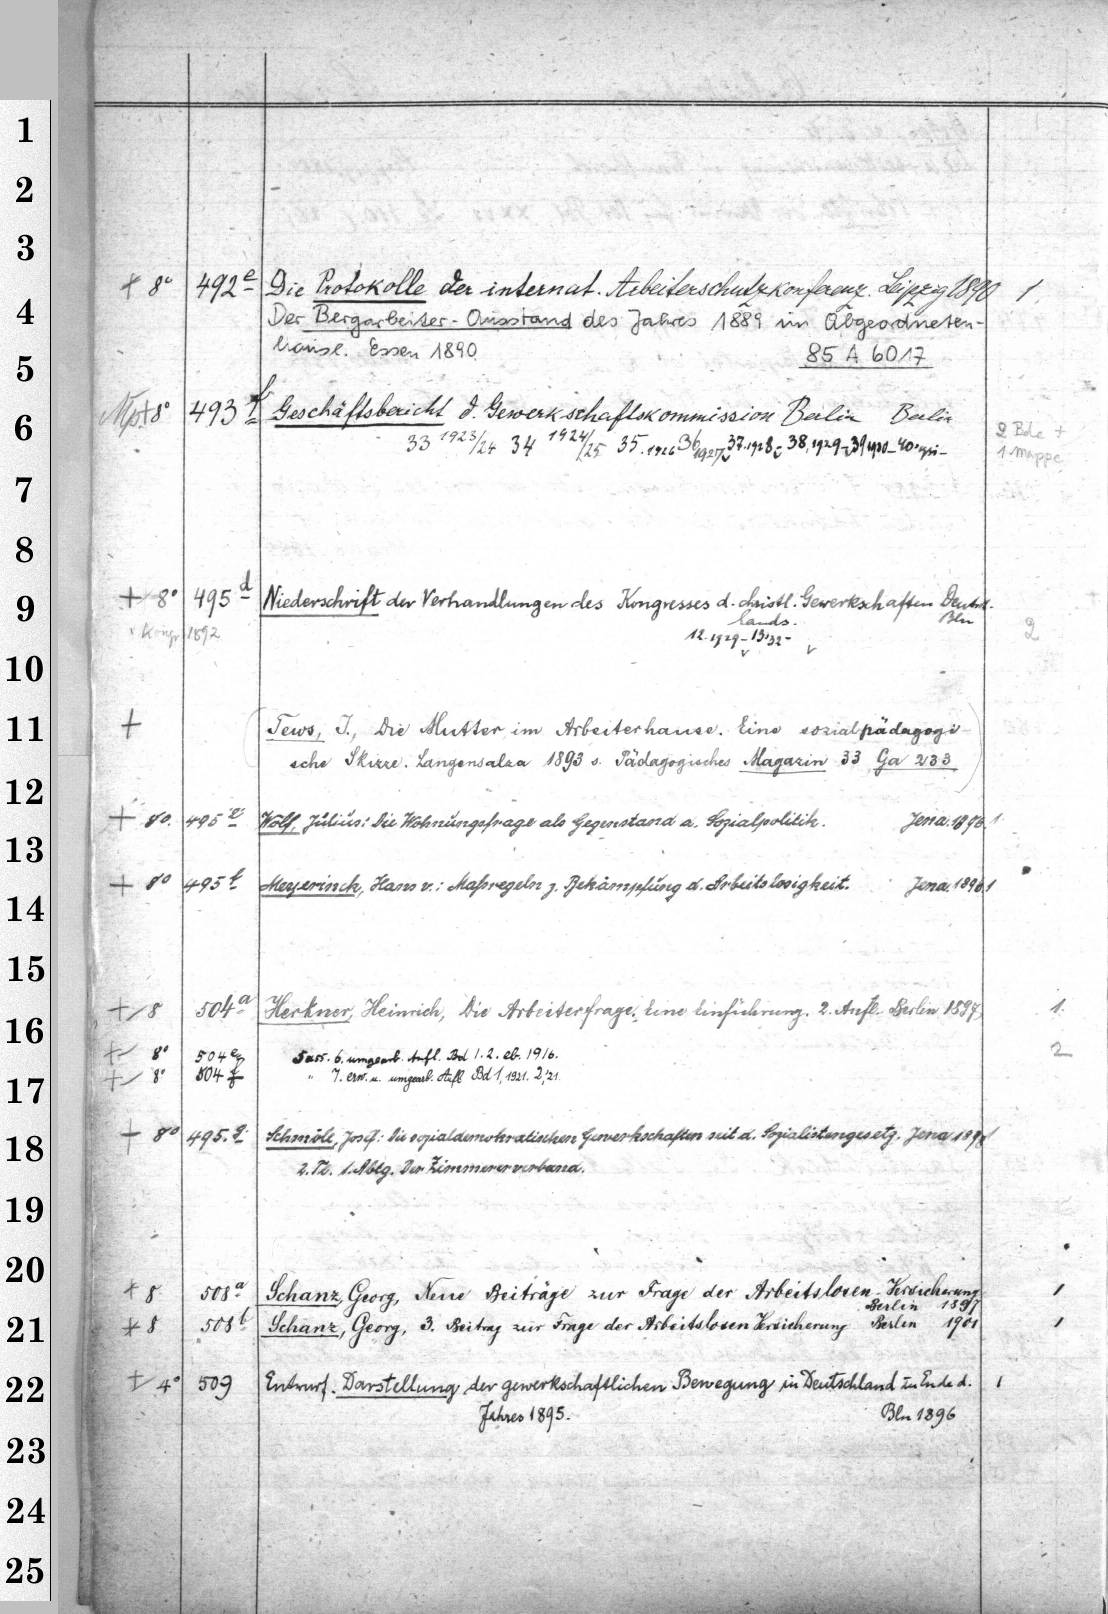 1
2
3
+ 8° 492e Die Protokolle der internat. Arbeiterschutzkonferenz. Leipzig 1890 1
4
Der Bergarbeiter-Ausstand des Jahres 1889 im Abgeordneten-
hause. Essen 1890. 85 A 6017
5
+ 8° 493 f Geschäftsbericht d. Gewerkschaftskommission Berlin Berlin
6
2 Bde +
33 1923/24 34 1924/25 35. 1926 36 1927 37. 1928 38, 1929 39 1930 40.
1 Mappe
7
8
+ 8° 495 d Niederschrift der Verhandlungen des Kongresses d. christl. Gewerkschaften Deutsch-
9
lands. Bln
Kongr. 1892 12. 1929 - 13. 32 - 2
10
+ Tews, J., Die Mutter im Arbeiterhause. Eine sozialpädagogi-
11
sche Skizze. Langensalza 1893 s. Pädagogisches Magazin 33 Ga 233
12
+ 8°. 495 e Wolf, Julius: Die Wohnungsfrage als Gegenstand d. Sozialpolitik. Jena. 1896. 1
13
+ 8° 495 f Meyerinck, Hans v.: Maßregeln z. Bekämpfung d. Arbeitslosigkeit. Jena. 1896. 1
14
15
+ 8 504a Herkner, Heinrich, Die Arbeiterfrage. Eine Einführung. 2. Aufl. Berlin 1897 1.
16
+ 8° 504 e Dass. 6. umgearb. Aufl. Bd 1. 2. eb. 1916. 2
+ 8° 504 f " 7. erw. u. umgearb. Aufl Bd 1, 1921. 2, 21.
17
+ 8° 495. g. Schmöle, Josef: Die sozialdemokratischen Gewerkschaften seit d. Sozialistengesetz. Jena 1898 1
18
2. Tl. 1. Abtg. Der Zimmererverband.
19
20
+ 8 508a Schanz, Georg, Neue Beiträge zur Frage der Arbeitslosen-Versicherung 1
Berlin 1897
21
+ 8 508b Schanz, Georg, 3. Beitrag zur Frage der Arbeitslosen Versicherung Berlin 1901 1
22
+ 4° 509 Entwurf. Darstellung der gewerkschaftlichen Bewegung in Deutschland zu Ende d. 1
Jahres 1895. Bln 1896
23
24
25